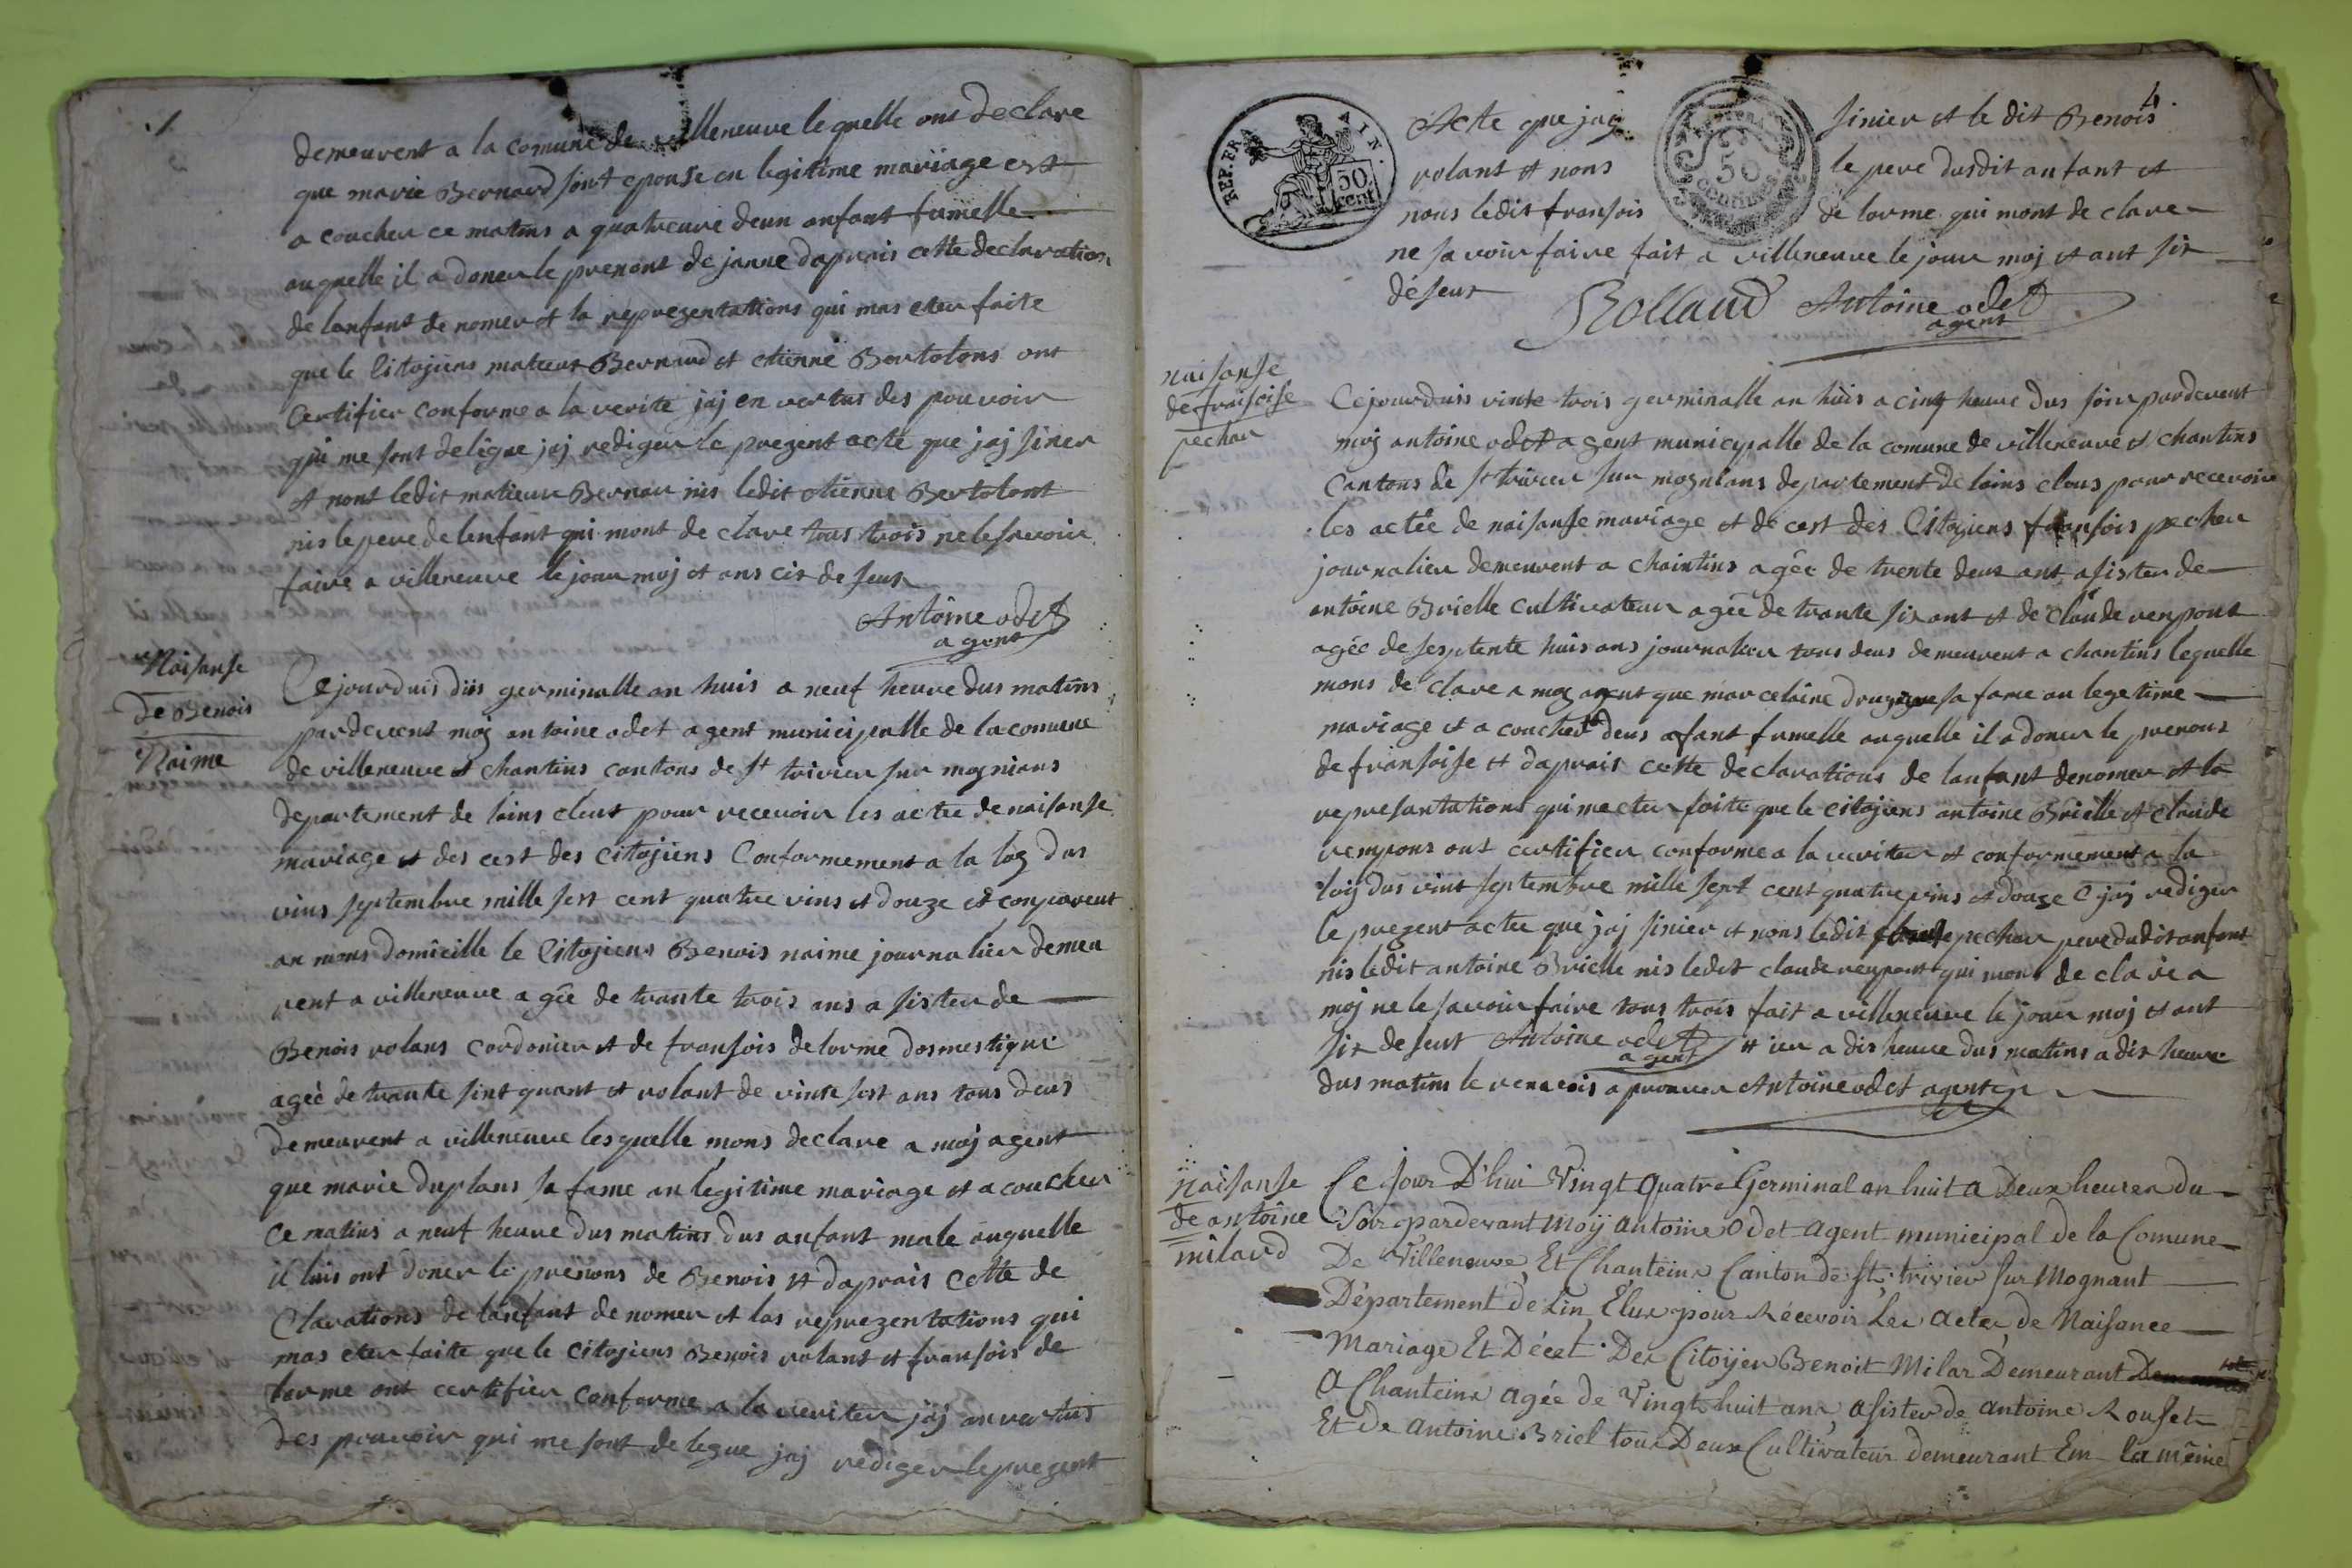 demeurent a la comune de villeneuve lequelle ons declare
que marie Bernard sont epouse an legitime mariage est
a coucher ce matins a quatreure deun anfant fumelle
auquelle il a doner le prenons de janne daprais cette declaration
de lanfant de nomer et la reprezentations qui mas eter faite
que le Citojiens mateus Bernard et etienne Bertolons ont
Certifier conforme a la verite jaj en vertus des pouvoir
qui me sont deligue jaj rediger le prezent acte que jaj siner
et nont ledit matieur Bernar nis ledit etienne Bertolont
nis le pere de lenfant qui mont de clare tous trois ne le savoir
faire a villeneuve le jour moj et ans cis de seur
Antoine odet
agent
Naisanse
de Benois
Naime
Cejourduis dis germinalle an huis a neuf heure dus matins
pardevent moj antoine odet agent municipalle de la comune
de villeneuve et chantins cantons de st trivier sur mognians
departement de lains eleus pour recevoir les actee de naisanse
mariage et des cest des citojiens Conformement a la loj dus
vins septembre mille sest cent quatre vins et douze est conparent
an mons domicille le Citojiens Benois naime journalier demeu
rent a villeneuve agée de trante trois ans a sister de
Benois volans cordonier et de fransois delorme domestique
agée de trante sint quant et volant de vinte sest ans tous deus
demeurent a villeneuve lesquelle mons declare a moj agent
que marie duplans sa fame an legitime mariage et a coucher
ce matins a neuf heure dus matins dus anfant male auquelle
il luis ont doner le prenons de Benois et daprais cette de
Clarations de lanfant de nomer et las reprezentations qui
mas eter faite que le citojiens Benois volans et fransois de
lorme ont certifier conforme a la veriter jaj an vertus
des pouvoir qui me sont delegue jaj rediger le prezent
4
REP. FRA AIN.
50 cent
50 centimes
Acte que jaj sinier et le dit Benois
volant et nons le pere dusdit anfant et
nons ledit fransois de lorme qui mont de clare
ne savoir faire fait a villeneuve le jour moj et ant sis
déseur
Rolland Antoine odet
agent
naisanse
de fransoise
pechar
Cejourduis vinte trois germinalle an huis a cinq heure dus soir pardevent
moj antoine odet agent municipalle de la comune de villeneuve et chantins
Cantons de st trivier sur mognians departement de lains eleus pour recevoir
les actée de naisanse mariage et de cest des Citojiens fransois pecher
journalier demeurent a chaintins agée de trente deus ant a sister de
antoine Brielle cultivateur agée de trante sis ant et de claude renpont
agée de septente huis ans journalier tous deus demeurent a chantins lequelle
mons de clare a moj agent que marcelaine sa fame an legetime
mariage et a coucher deus afant fumelle auquelle il a doner le prenons
de fransoise et daprais cette declarations de lanfant denomer et la
represantations qui me eter faite que le citojiens antoine Brielle et claude
rempons ont certifier conforme a la veriter et conformement a la
loij dus vint septembre mille sept cent quatre vins et douze jaj rediger
le prezent actee que jaj sinier et nons ledit pechar pere dudit anfant
nis ledit antoine Brielle nis ledit claude renpont qui mont de clare a
moj ne le savoir faire tous trois fait a villeneuve le jour moj et ant
sis de seur Antoine odet agent et ier a dis heure dus matins a dis heure
dus matins le venvois aprouver Antoine odet agent
naisanse
de antoine
milard
Ce jour D'hui Vingt quatre Germinal an huit a Deux heures du
Soir pardevant moij antoine Odet agent municipal de la Comune
De Villeneuve, Et Chanteins Canton de st. trivier sur Mognant
Département de Lin Elus pour Récevoir Les actes de Naisance
Mariage Et Décet. Des Citoijen Benoit Milar Demeurant
a Chanteins agée de Vingt huit ans, asister de antoine Rouset
Et De antoine Briel tous Deux Cultivateur demeurant Em la même